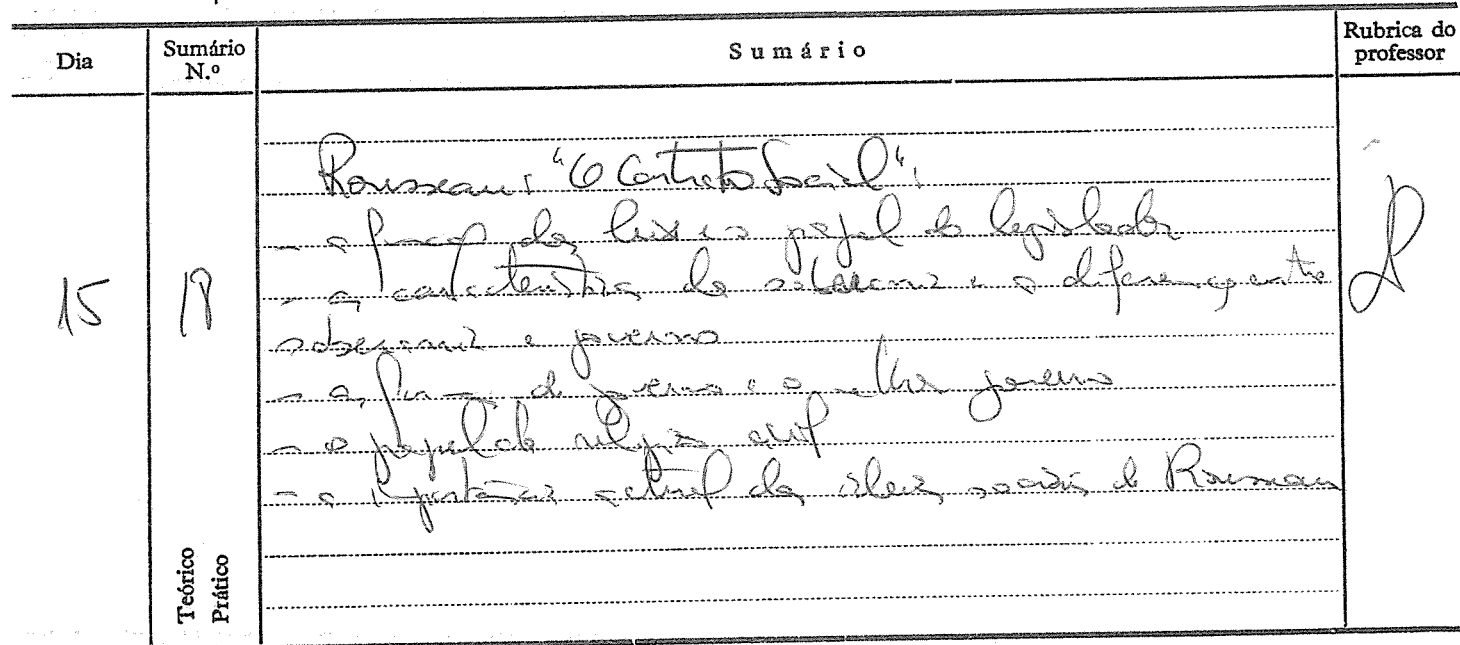 Dia
Sumário N.º
Sumário
Rubrica do professor
15
18
Rousseau: "O Contrato Social":
- a função das leis e o papel do legislador
- as características da soberania e a diferença entre
soberania e governo
- as formas de governo e o melhor governo
- o papel da religião civil
- a importância actual das ideias sociais de Rousseau
Teórico
Prático